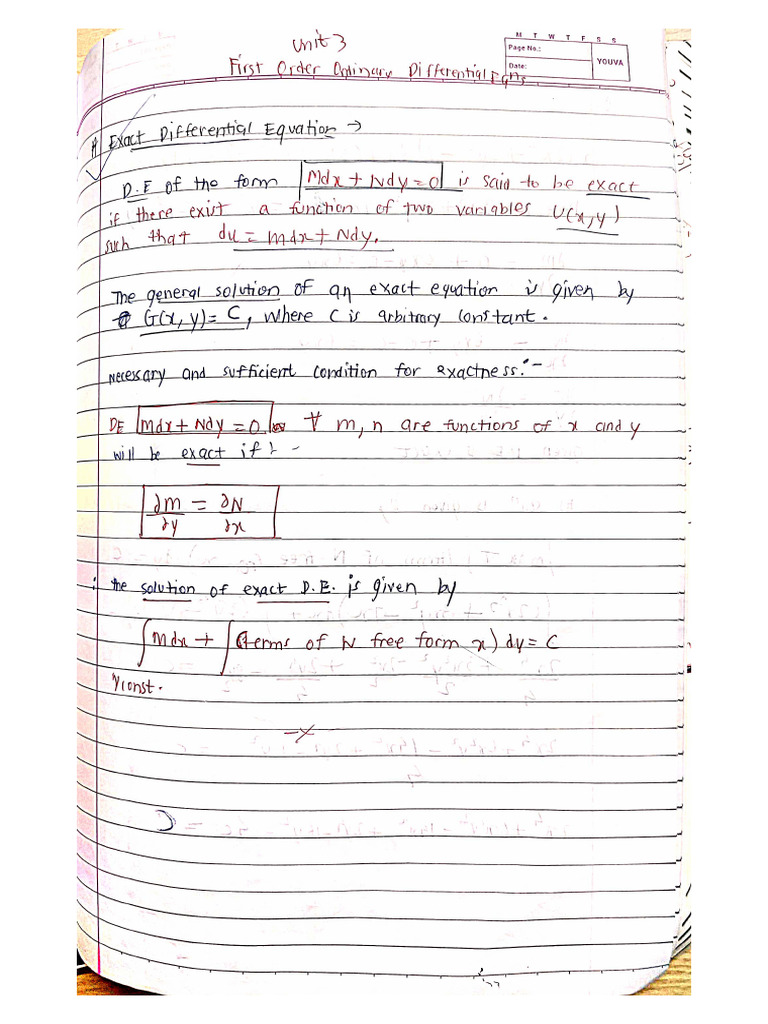 M T W T F S S
Page No.:
Date:
YOUVA
Unit 3
First Order Ordinary Differential Eqns
Exact Differential Equation →
D.E of the form Mdx + Ndy = 0 is said to be exact
if there exist a function of two variables U(x,y)
such that du = mdx + Ndy.
The general solution of an exact equation is given by
G(x, y) = C, where C is arbitrary constant.
Necessary and sufficient condition for exactness:-
DE Mdx + Ndy = 0 ∀ m, n are functions of x and y
will be exact if :-
∂M/∂y = ∂N/∂x
∴ the solution of exact D.E. is given by
∫Mdx + ∫(terms of N free form x) dy = C
yconst.
-x